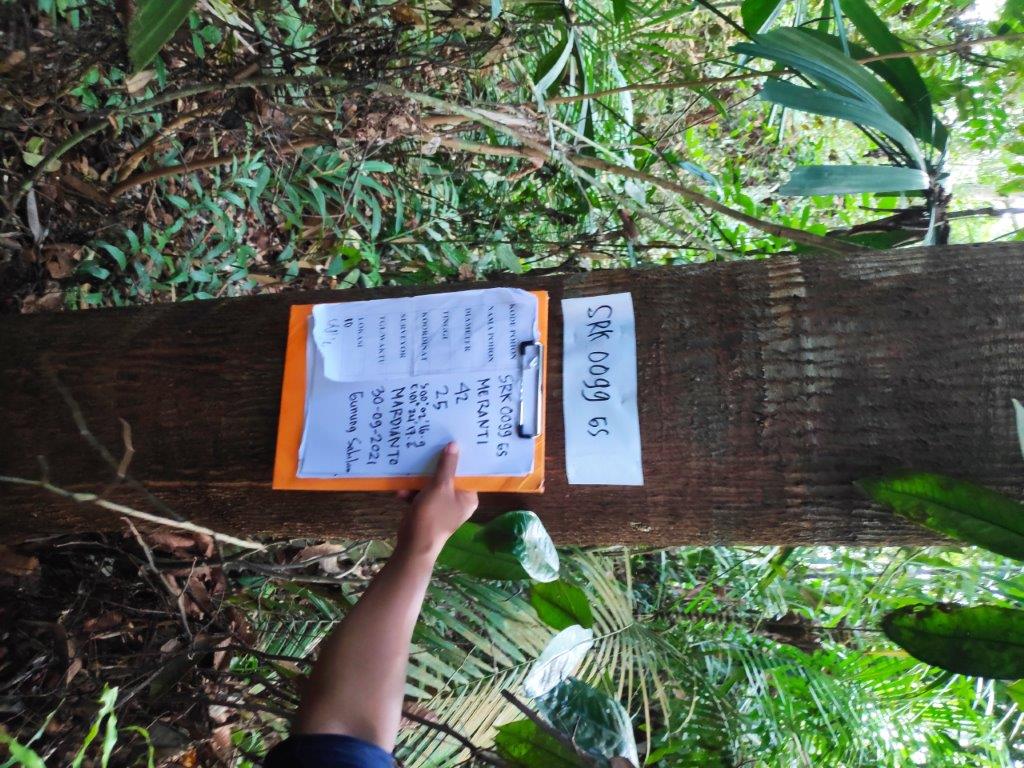 SRK 0099 GS
KODE POHON SRK 0099 GS
NAMA POHON MERANTI
DIAMETER 42
TINGGI 25
KOORDINAT S 00°02'16.9
E 101°24'17.6
SURVEYOR MARDIANTO
TGL/WAKTU 30-09-2021
LOKASI Gunung Sahilan
ID